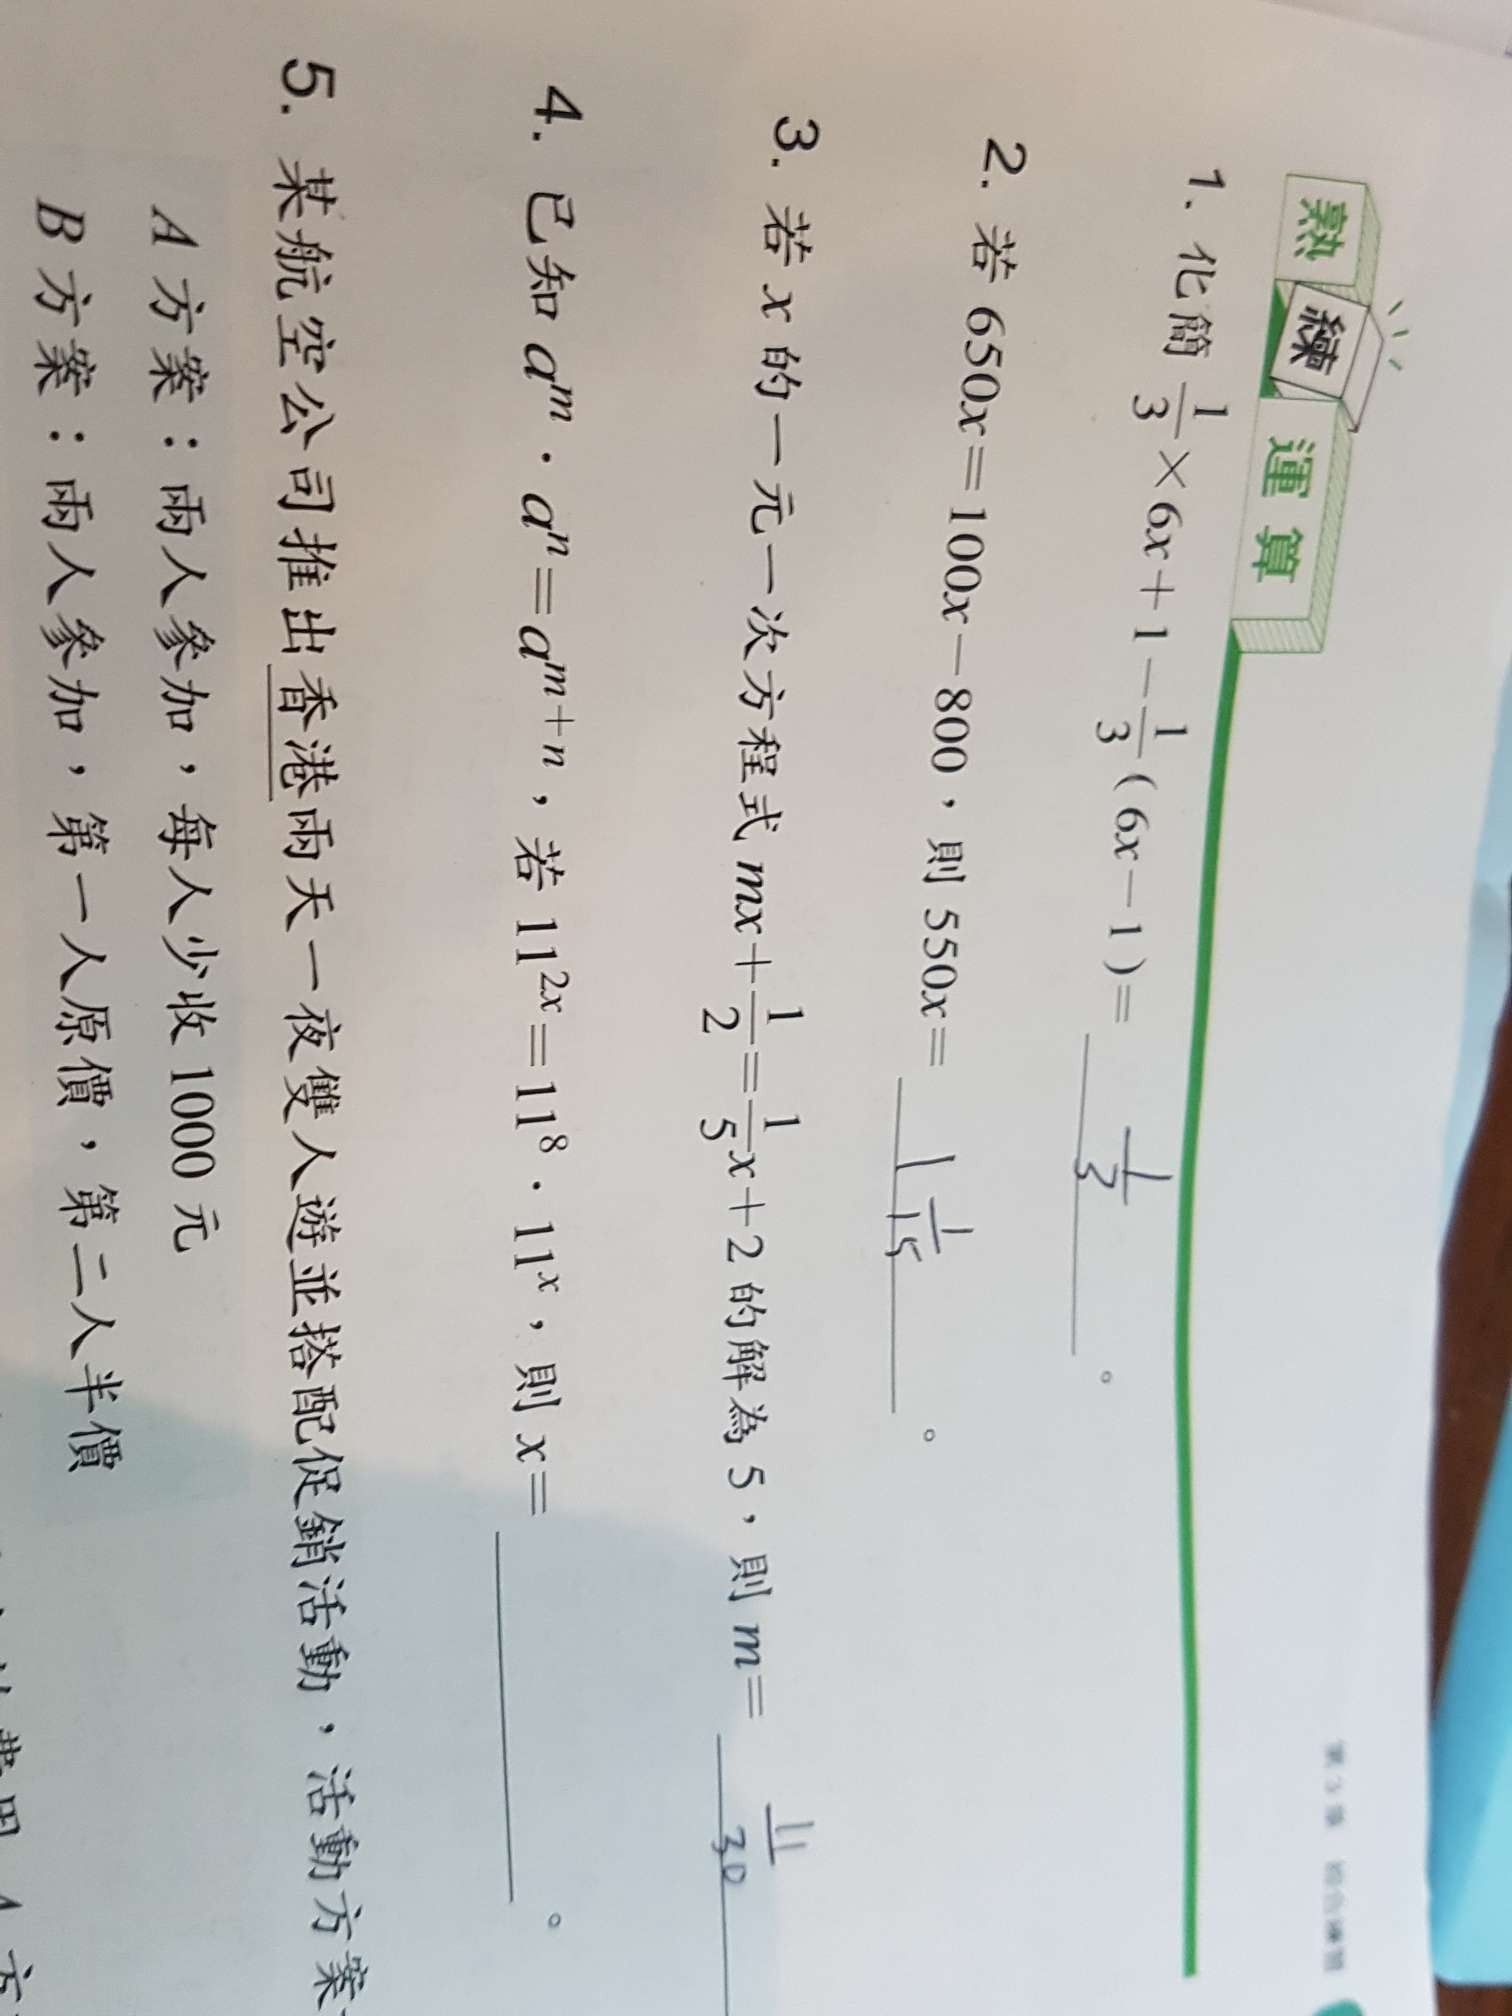 第 3 章 綜合練習
熟練運算
1. 化簡 1/3×6x+1-1/3(6x-1)= 1/3 。
2. 若 650x=100x-800，則 550x= 1 1/15 。
3. 若 x 的一元一次方程式 mx+1/2=1/5x+2 的解為 5，則 m= 11/30
4. 已知 aᵐ · aⁿ=aᵐ⁺ⁿ，若 11²ˣ=11⁸ · 11ˣ，則 x= 。
5. 某航空公司推出香港兩天一夜雙人遊並搭配促銷活動，活動方案
A 方案：兩人參加，每人少收 1000 元
B 方案：兩人參加，第一人原價，第二人半價